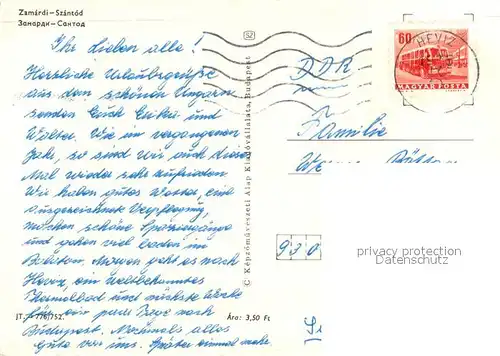 Zamárdi-Szántód
Замарди-Сантод
Ihr Lieben alle!
Herzliche Urlaubsgrüße
aus dem schönen Ungarn
senden Euch Erika und
Walter. Wie im vergangenen
Jahr, so sind wir auch dieses
Mal wieder sehr zufrieden.
Wir haben gutes Wetter, eine
ausgezeichnete Verpflegung,
machen schöne Spaziergänge
und gehen viel baden im
Balaton. Morgen geht es nach
Heviz, ein weltbekanntes
Thermalbad und nächste Woche
für ein paar Tage nach
Budapest. Nochmals alles
Gute von uns. Später einmal mehr.
JT. - 776/752.
Ára: 3,50 Ft
© Képzőművészeti Alap Kiadóvállalata, Budapest
52
60
MAGYAR POSTA
HEVIZ
DDR
Familie
930
privacy protection
Datenschutz